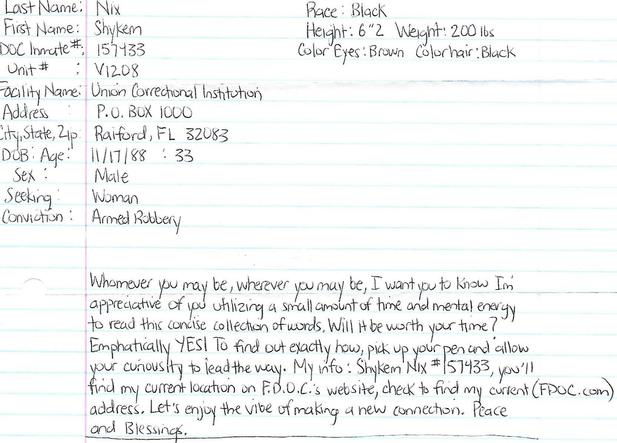 Last Name: Nix Race: Black
First Name: Shykem Height: 6"2 Weight: 200 lbs
DOC Inmate #: 157433 Color Eyes: Brown Color hair: Black
Unit # : V1208
Facility Name: Union Correctional Institution
Address P.O. BOX 1000
City, State, Zip Raiford, FL 32083
DOB: Age: 11/17/88 : 33
Sex : Male
Seeking: Woman
Conviction: Armed Robbery
Whomever you may be, wherever you may be, I want you to know Im'
appreciative of you utilizing a small amount of time and mental energy
to read this concise collection of words. Will it be worth your time?
Emphatically YES! To find out exactly how, pick up your pen and allow
your curiousity to lead the way. My info: Shykem Nix #157433, you'll
find my current location on F.D.O.C.'s website, check to find my current (FDOC.com)
address. Let's enjoy the vibe of making a new connection. Peace
and Blessings.